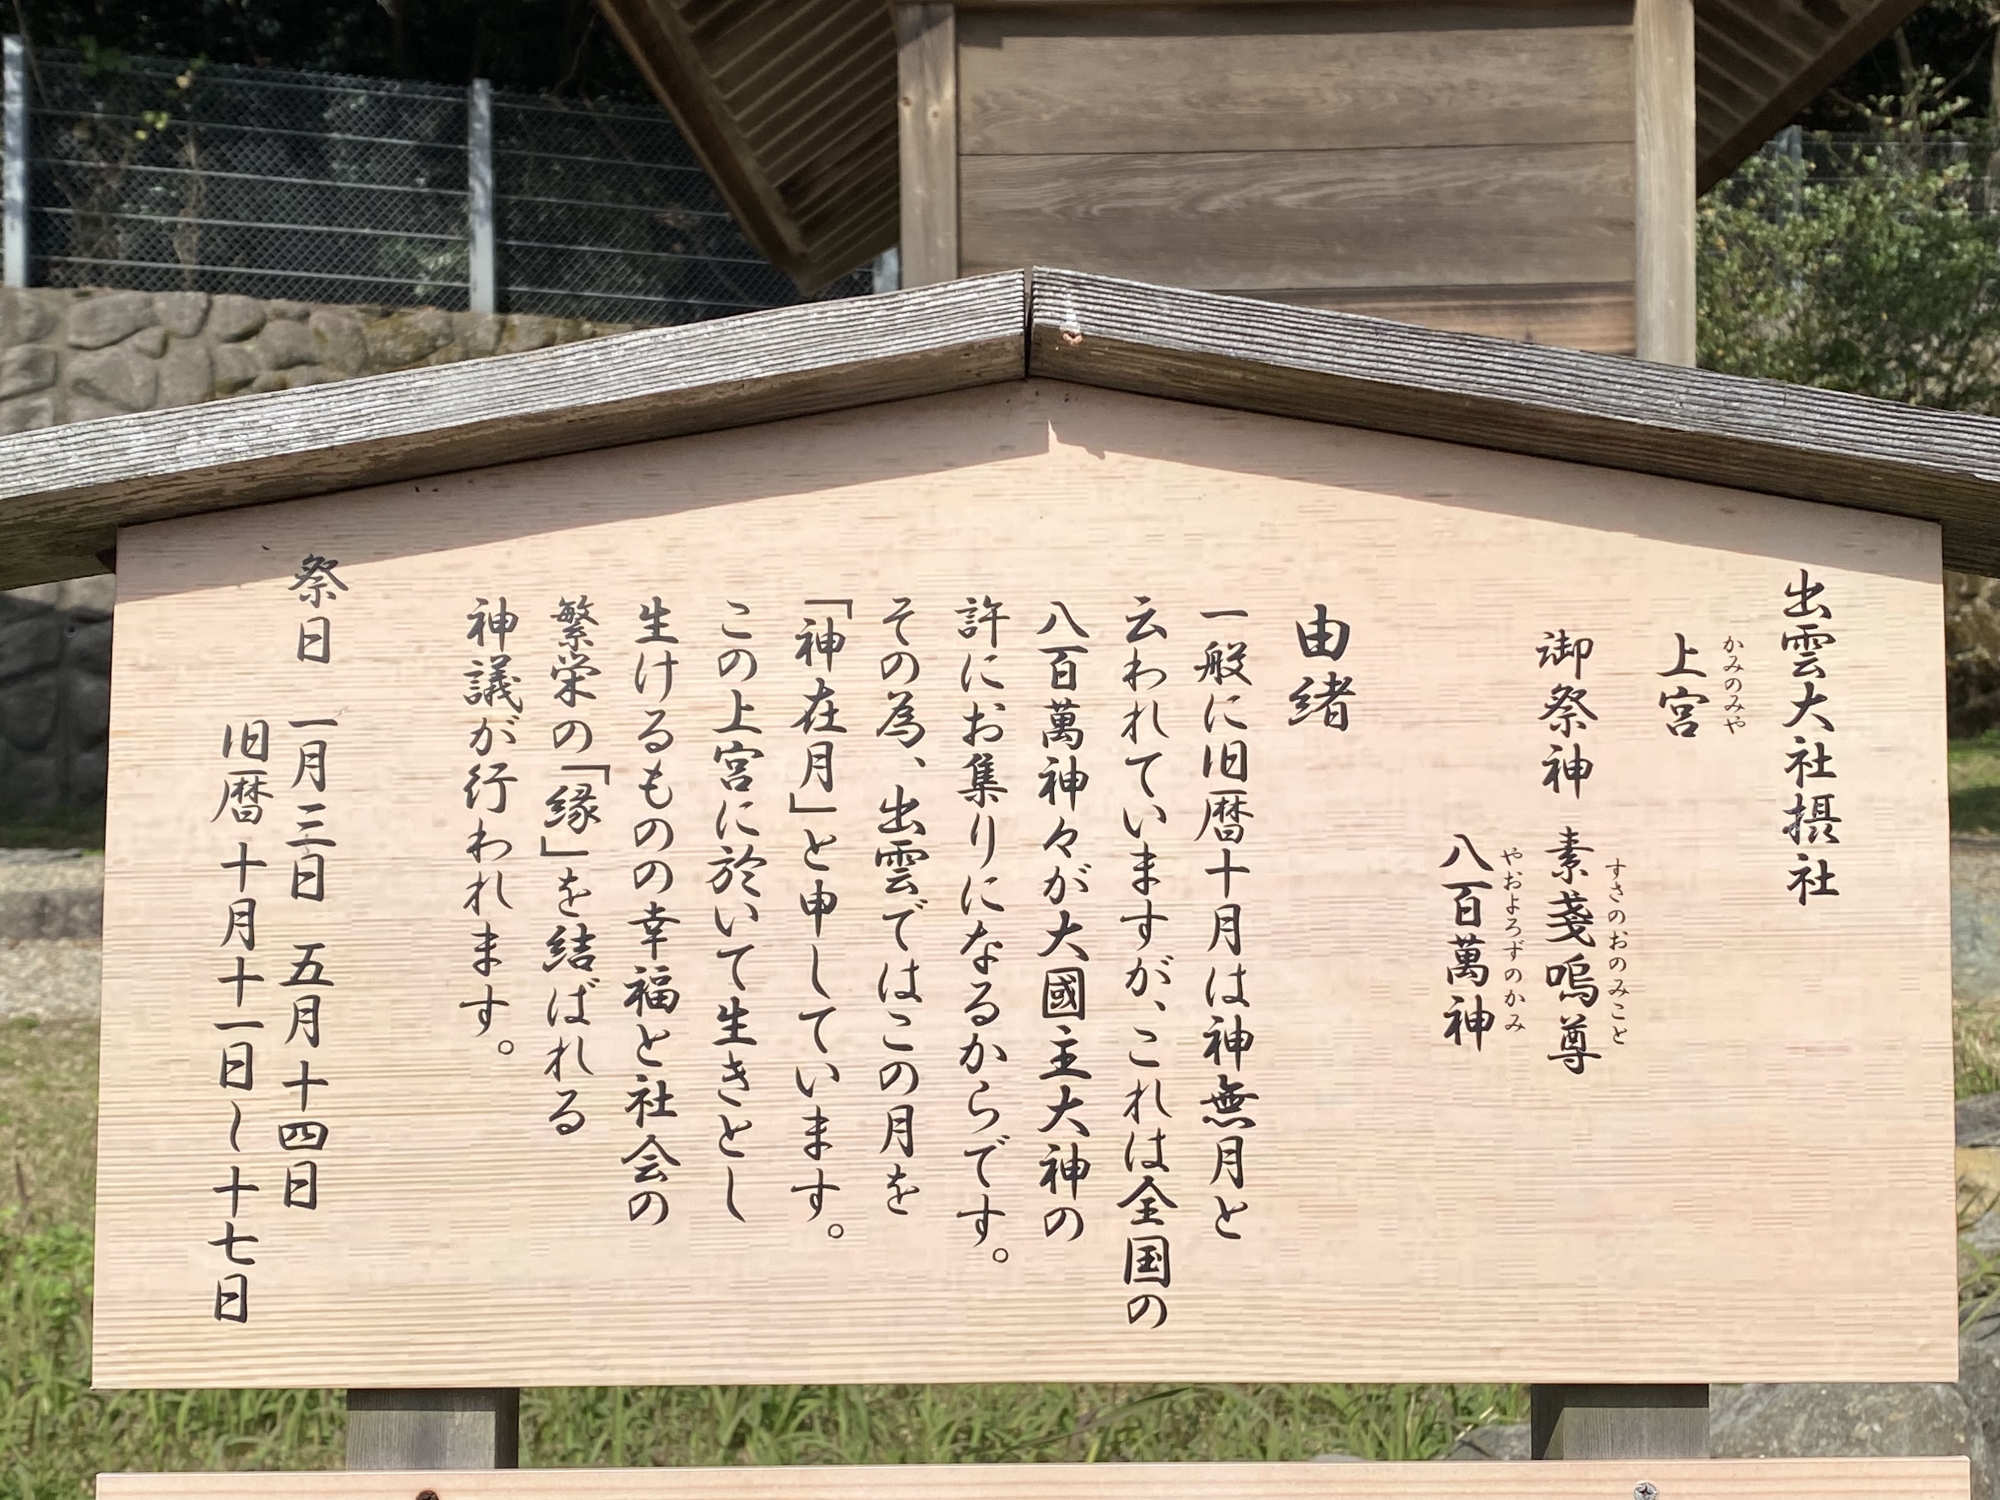 出雲大社摂社
上宮
かみのみや
御祭神 素戔嗚尊
すさのおのみこと
八百萬神
やおよろずのかみ
由緒
一般に旧暦十月は神無月と
云われていますが、これは全国の
八百萬神々が大國主大神の
許にお集りになるからです。
その為、出雲ではこの月を
「神在月」と申しています。
この上宮に於いて生きとし
生けるものの幸福と社会の
繁栄の「縁」を結ばれる
神議が行われます。
祭日 一月三日 五月十四日
旧暦 十月十一日~十七日